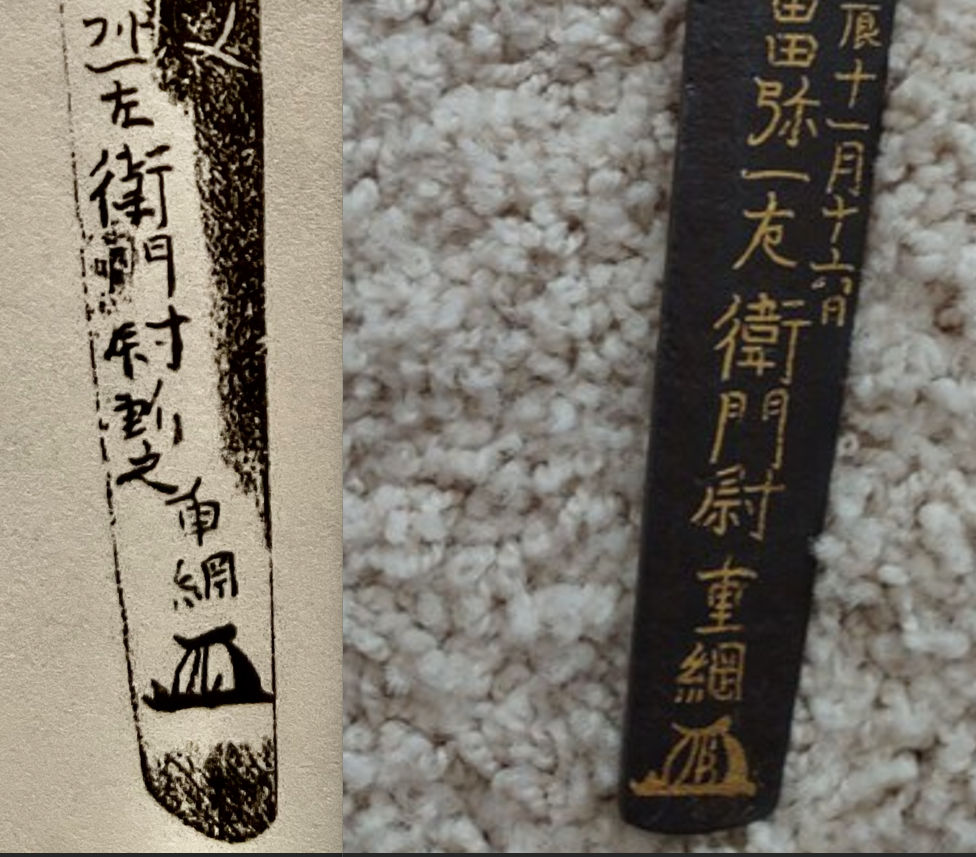 一左衛門尉
之
重綱
十一月十六日
田弥一左衛門尉重綱